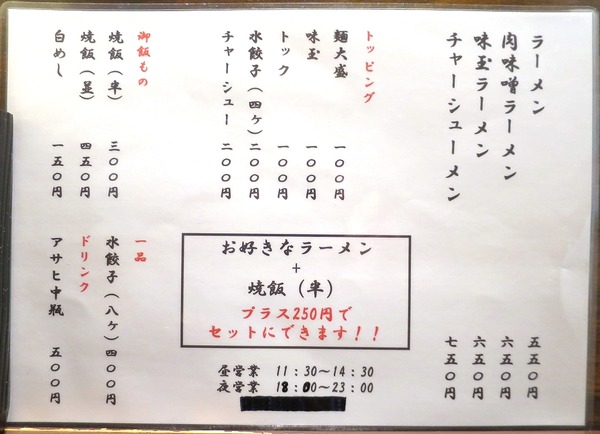 ラーメン 五五〇円
肉味噌ラーメン 六五〇円
味玉ラーメン 六五〇円
チャーシューメン 七五〇円
トッピング
麺大盛 一〇〇円
味玉 一〇〇円
トック 一〇〇円
水餃子(四ケ) 二〇〇円
チャーシュー 二〇〇円
御飯もの
焼飯(半) 三〇〇円
焼飯(並) 四五〇円
白めし 一五〇円
お好きなラーメン
+
焼飯(半)
プラス250円で
セットにできます!!
一品
水餃子(八ケ) 四〇〇円
ドリンク
アサヒ中瓶 五〇〇円
昼営業 11:30～14:30
夜営業 18:00～23:00